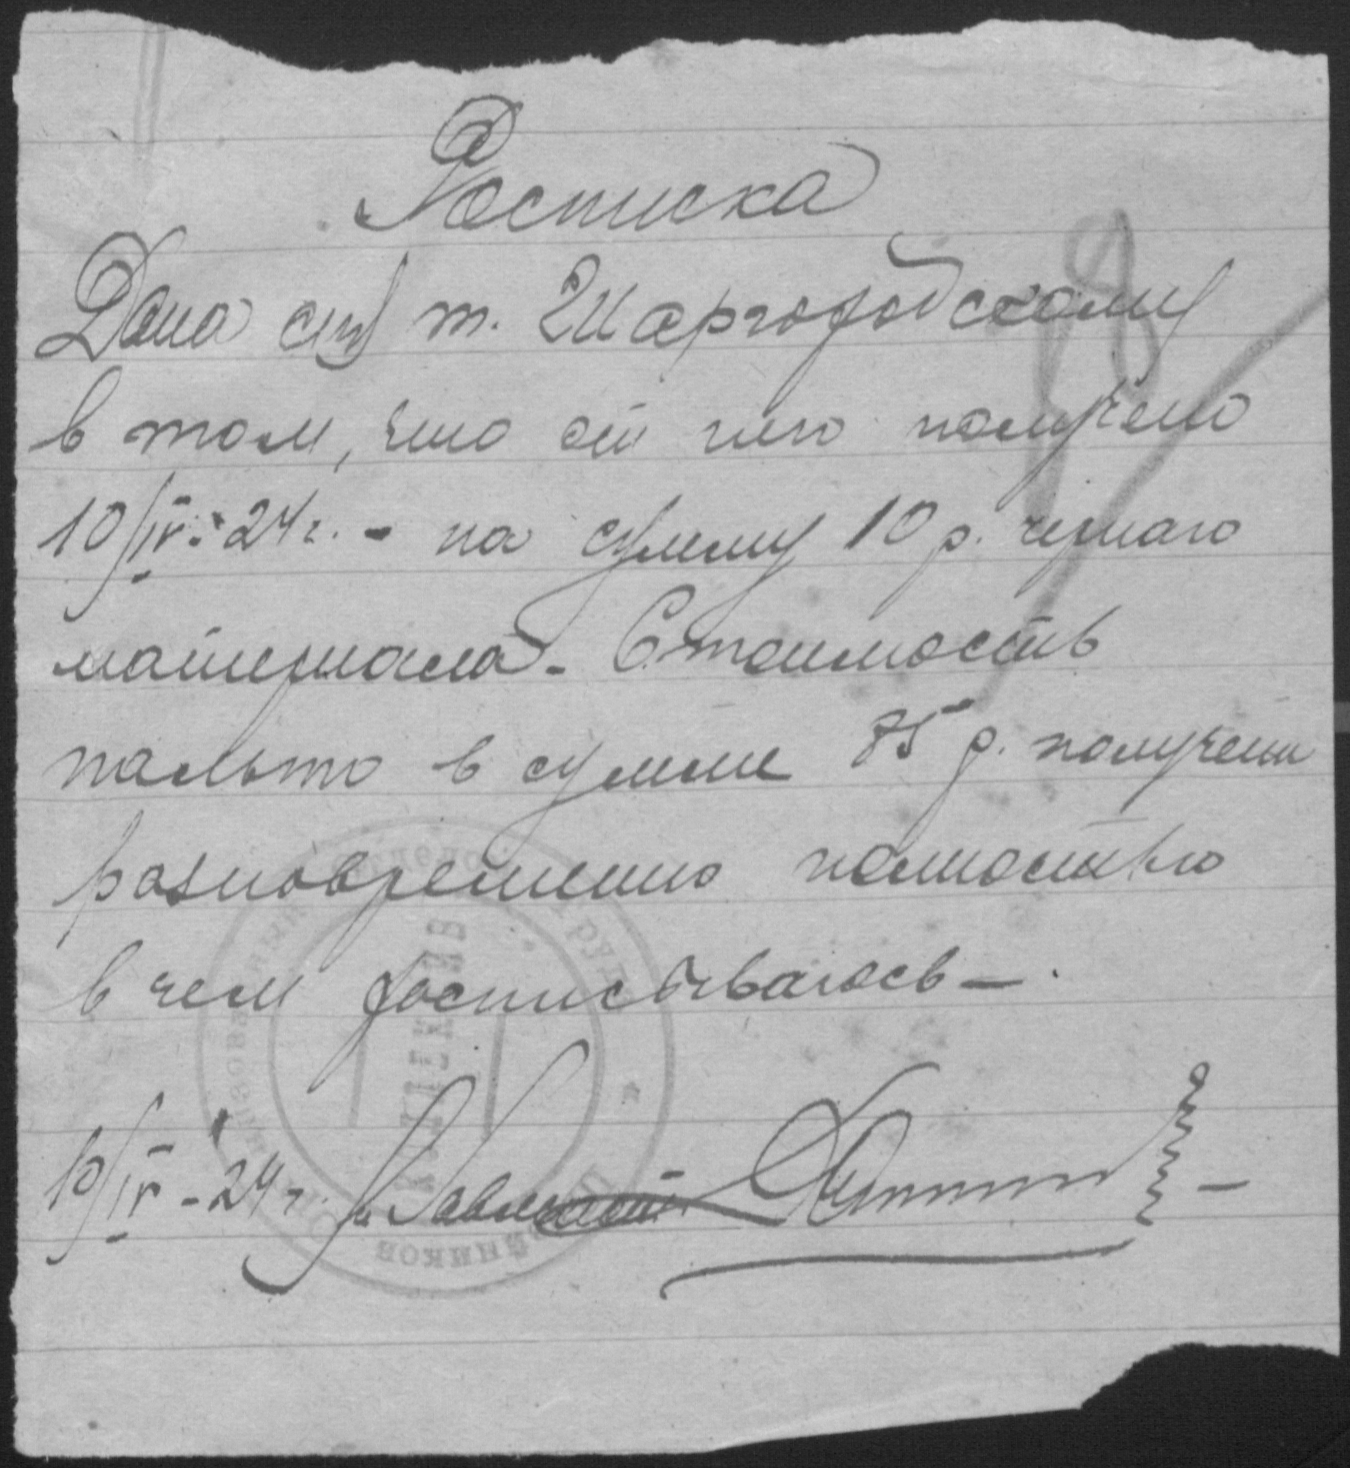 Росписка
Дана сия т. Шаргородскому
в том, что от него получено
10/IV-24г. - на сумму 10 р. чернаго
материала. Стоимость
пальто в сумме 85 р. получены
разновременно полностью
в чем росписываюсь -.
10/IV-24г.
98